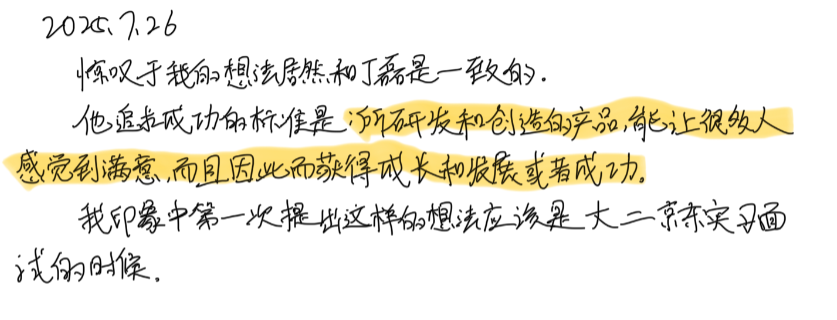 2025.7.26
惊叹于我的想法居然和丁磊是一致的.
他追求成功的标准是:所研发和创造的产品,能让很多人
感觉到满意,而且因此而获得成长和发展或者成功.
我印象中第一次提出这样的想法应该是大二京东实习面
试的时候.